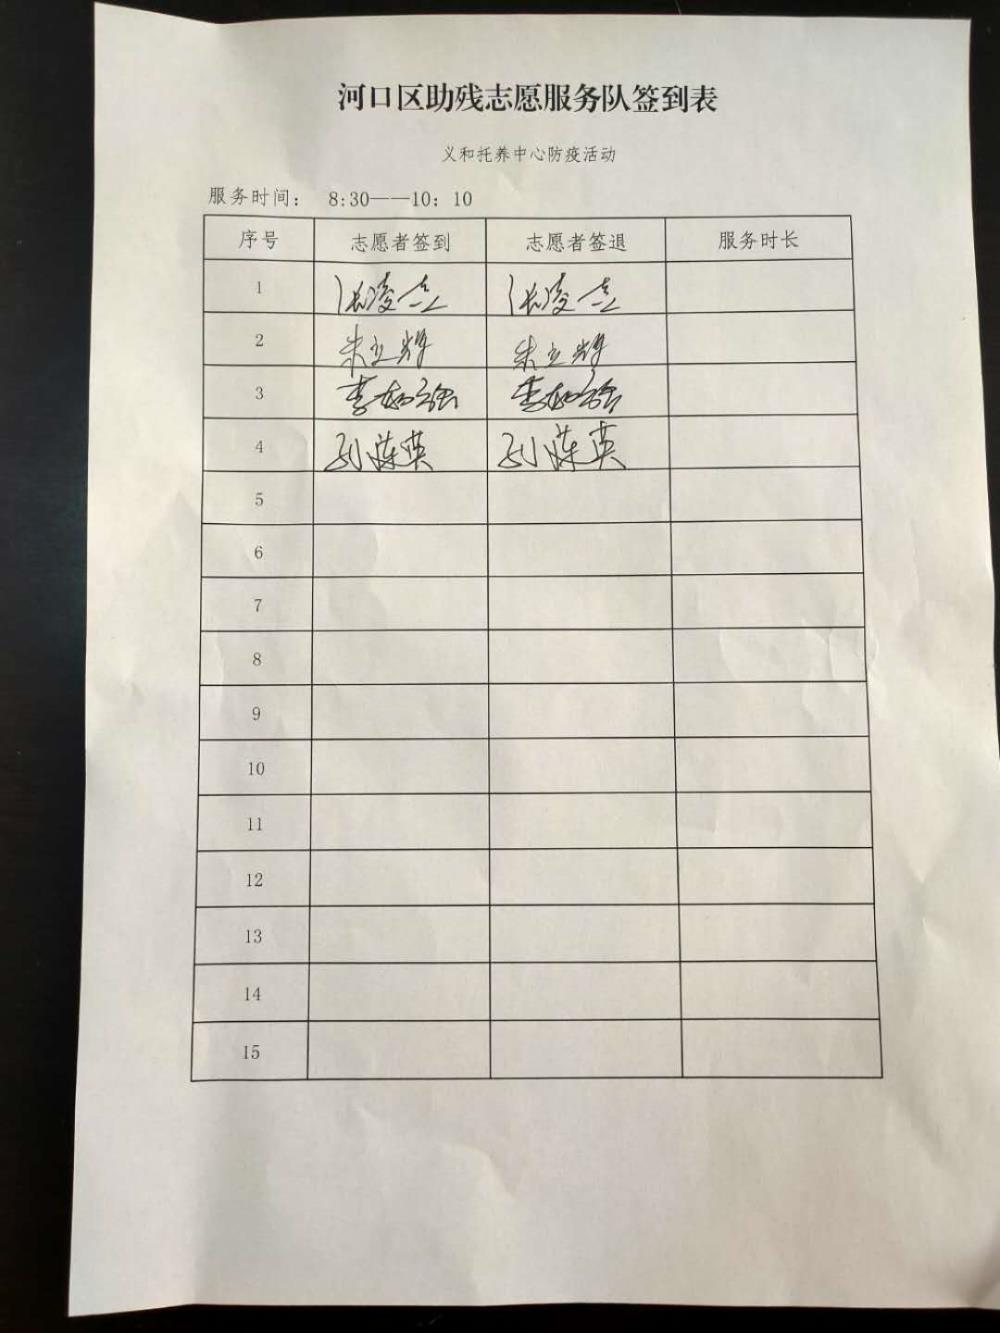 河口区助残志愿服务队签到表
义和托养中心防疫活动
服务时间： 8:30——10：10
序号 志愿者签到 志愿者签退 服务时长
1 张凌云 张凌云
2 朱立辉 朱立辉
3 李如强 李如强
4 孙莲英 孙莲英
5
6
7
8
9
10
11
12
13
14
15